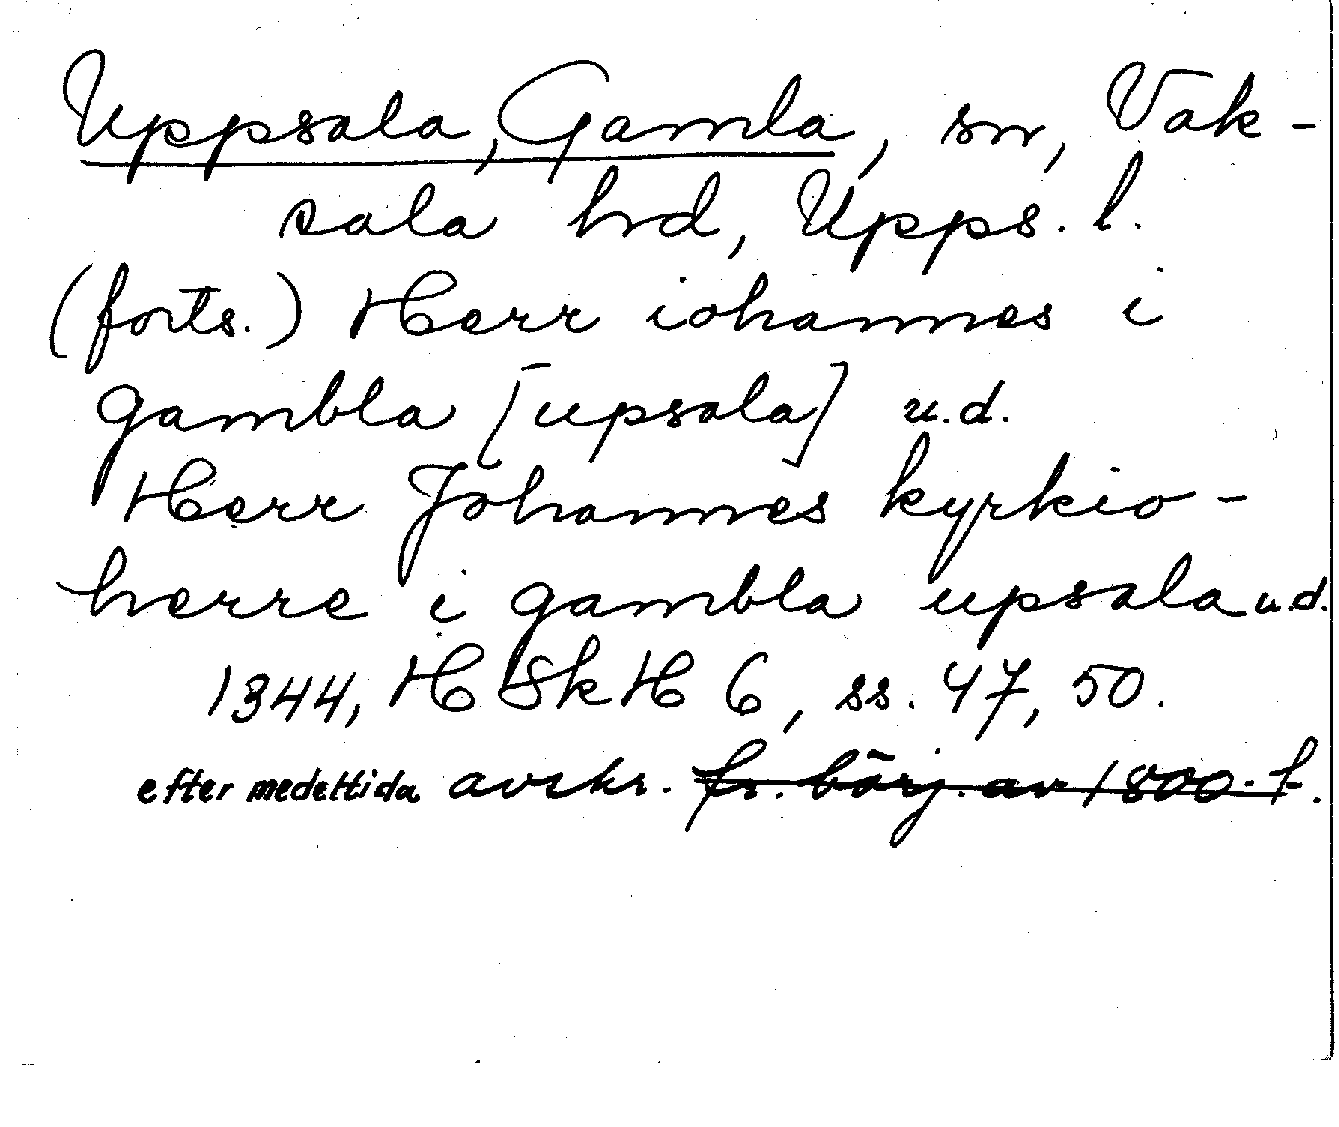 Uppsala, Gamla, sn, Vak-
sala hrd, Upps. l.
(forts.) Herr iohannes i
gambla [upsala] u.d.
Herr Johannes kyrkio-
herre i gambla upsala u.d.
1344, HSkH 6, ss. 47, 50.
efter medeltida avskr. fr. börj. av 1800-t.